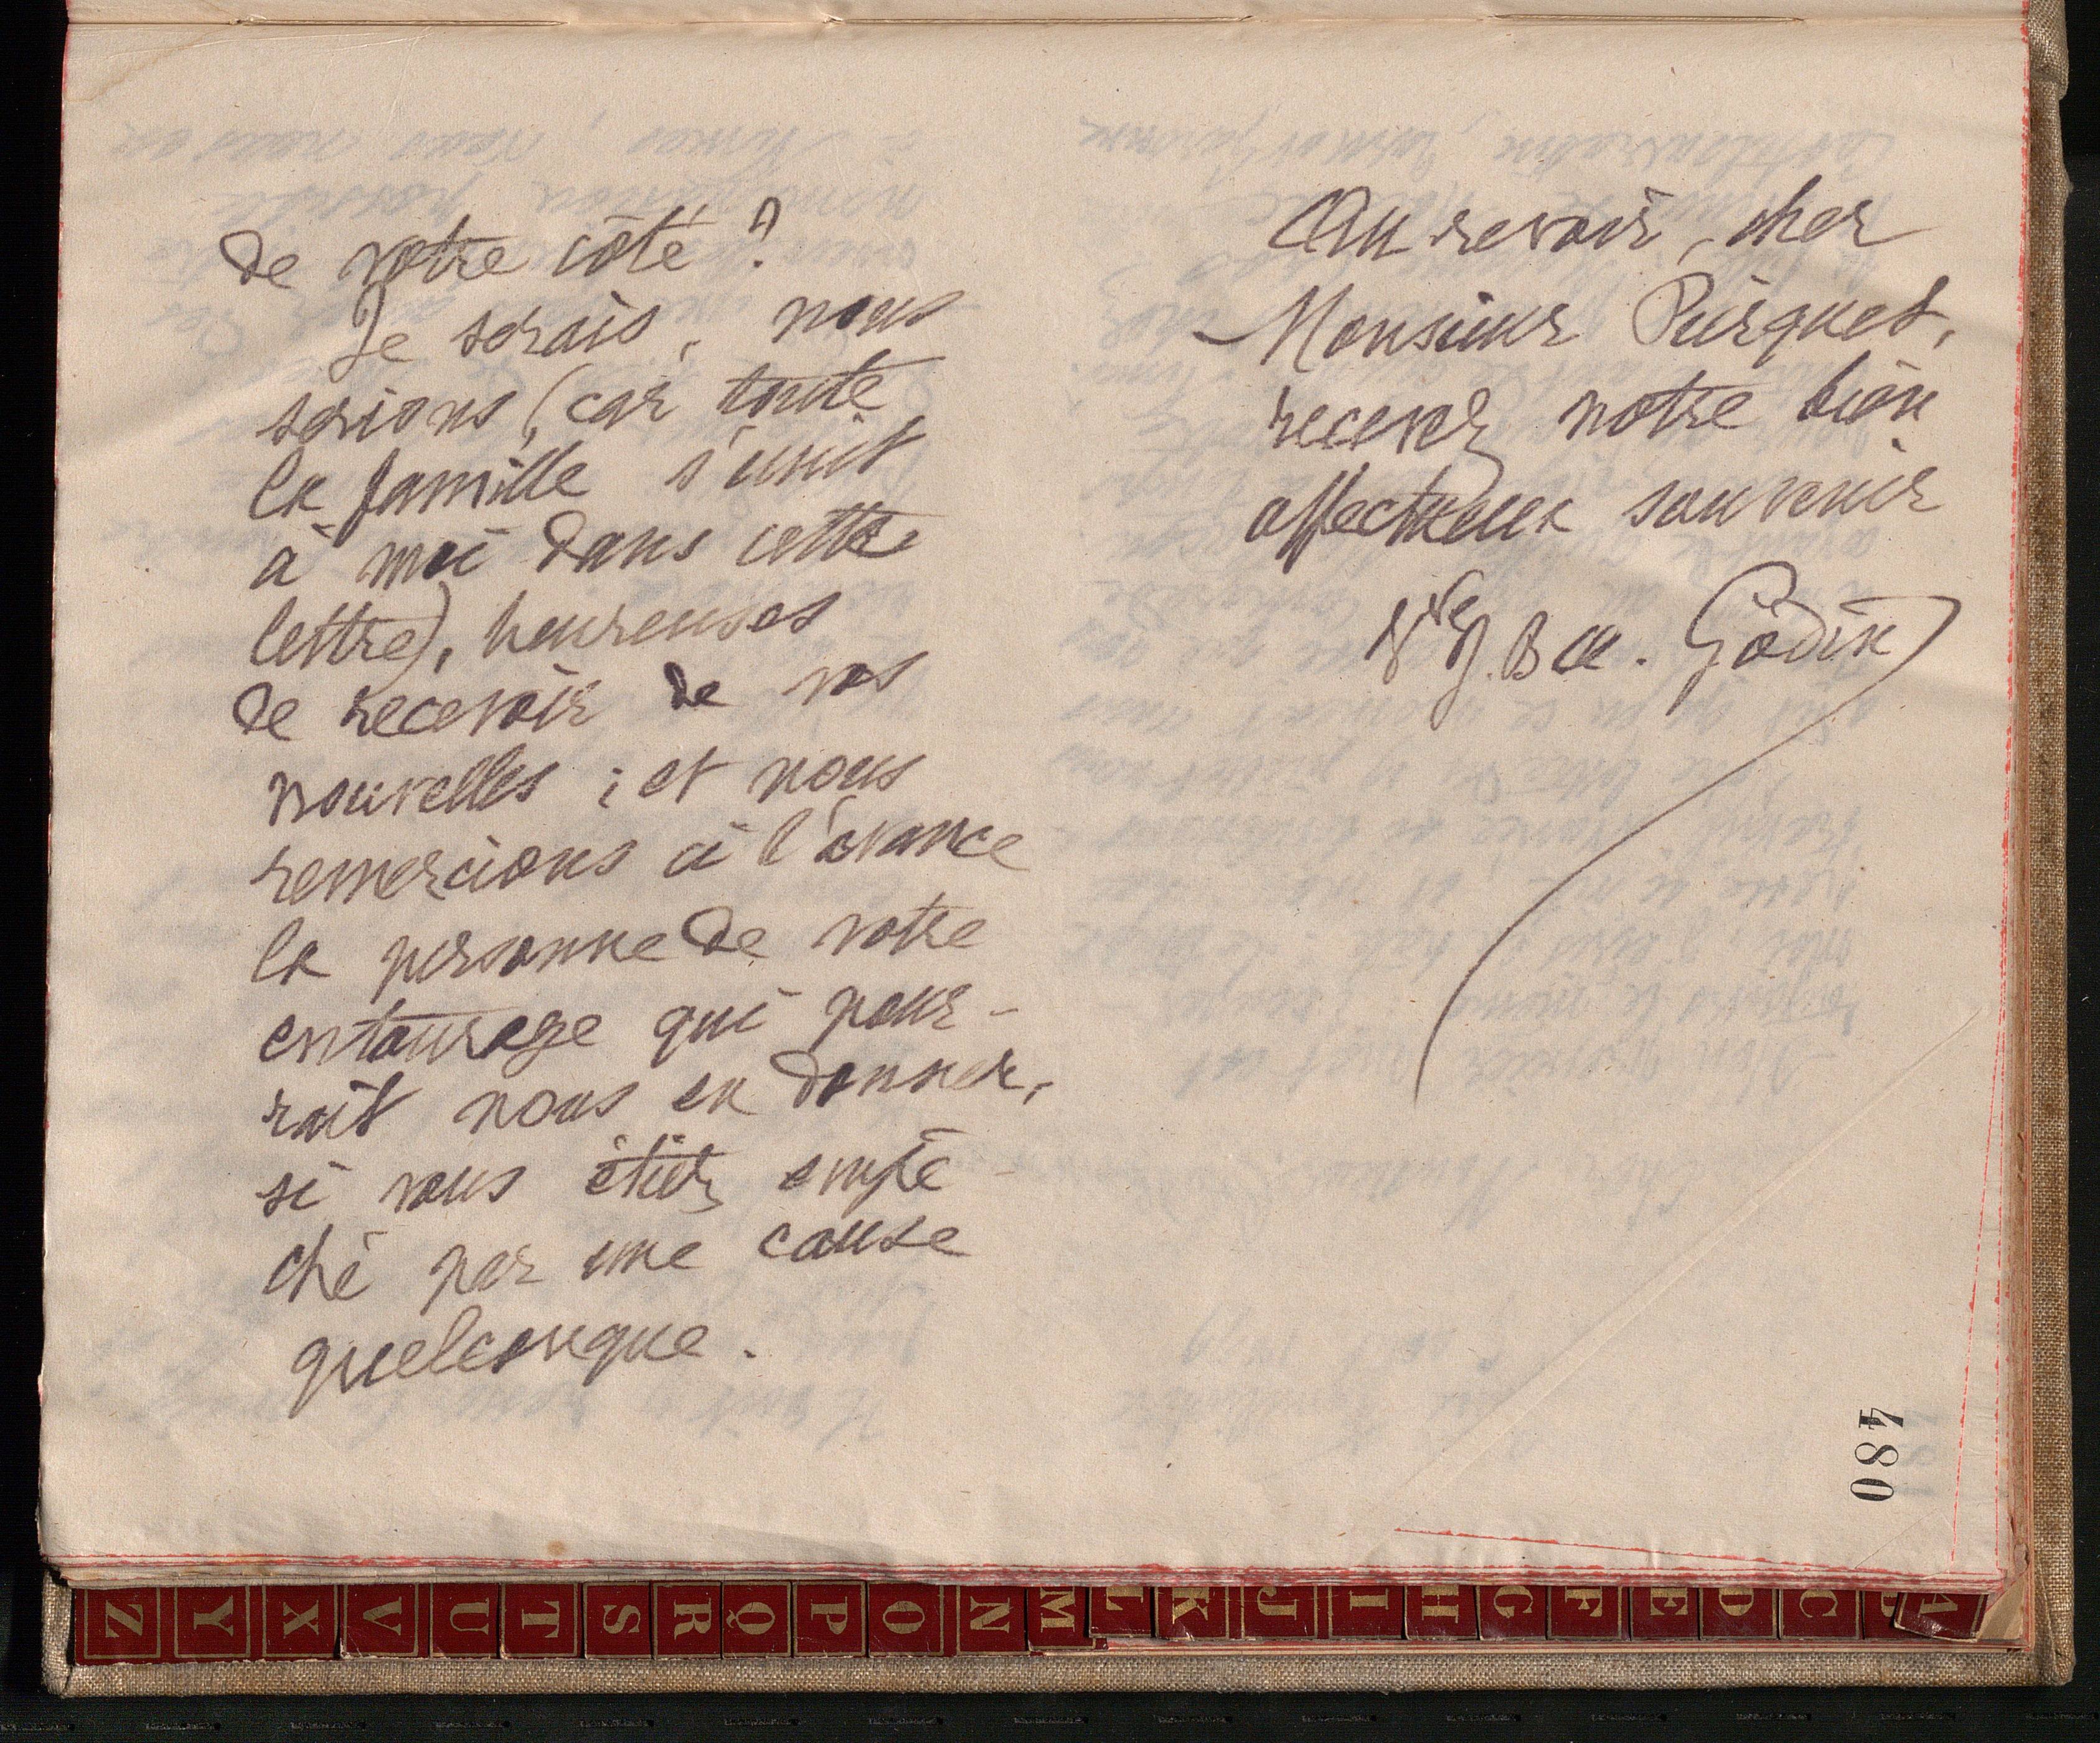 de votre côté ?
Je serais, nous
serions, (car toute
la famille s'unit
à moi dans cette
lettre), heureuses
de recevoir de vos
nouvelles ; et nous
remercions à l'avance
la personne de votre
entourage qui pour-
rait nous en donner,
si vous étiez empê-
ché par une cause
quelconque.
Au revoir, cher
Monsieur Puirquet,
recevez notre bien
affectueux souvenir
Vve J. Bte. Godin
480
Z Y X V U T S R Q P O N M L K J I H G F E D C B A